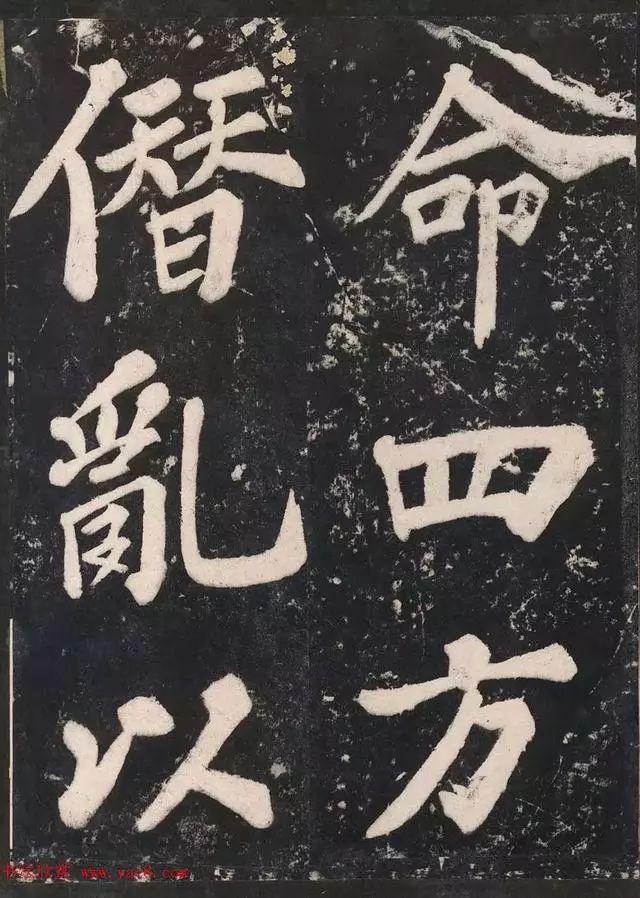 命四方
僣亂以
书法欣赏 www.yac8.com